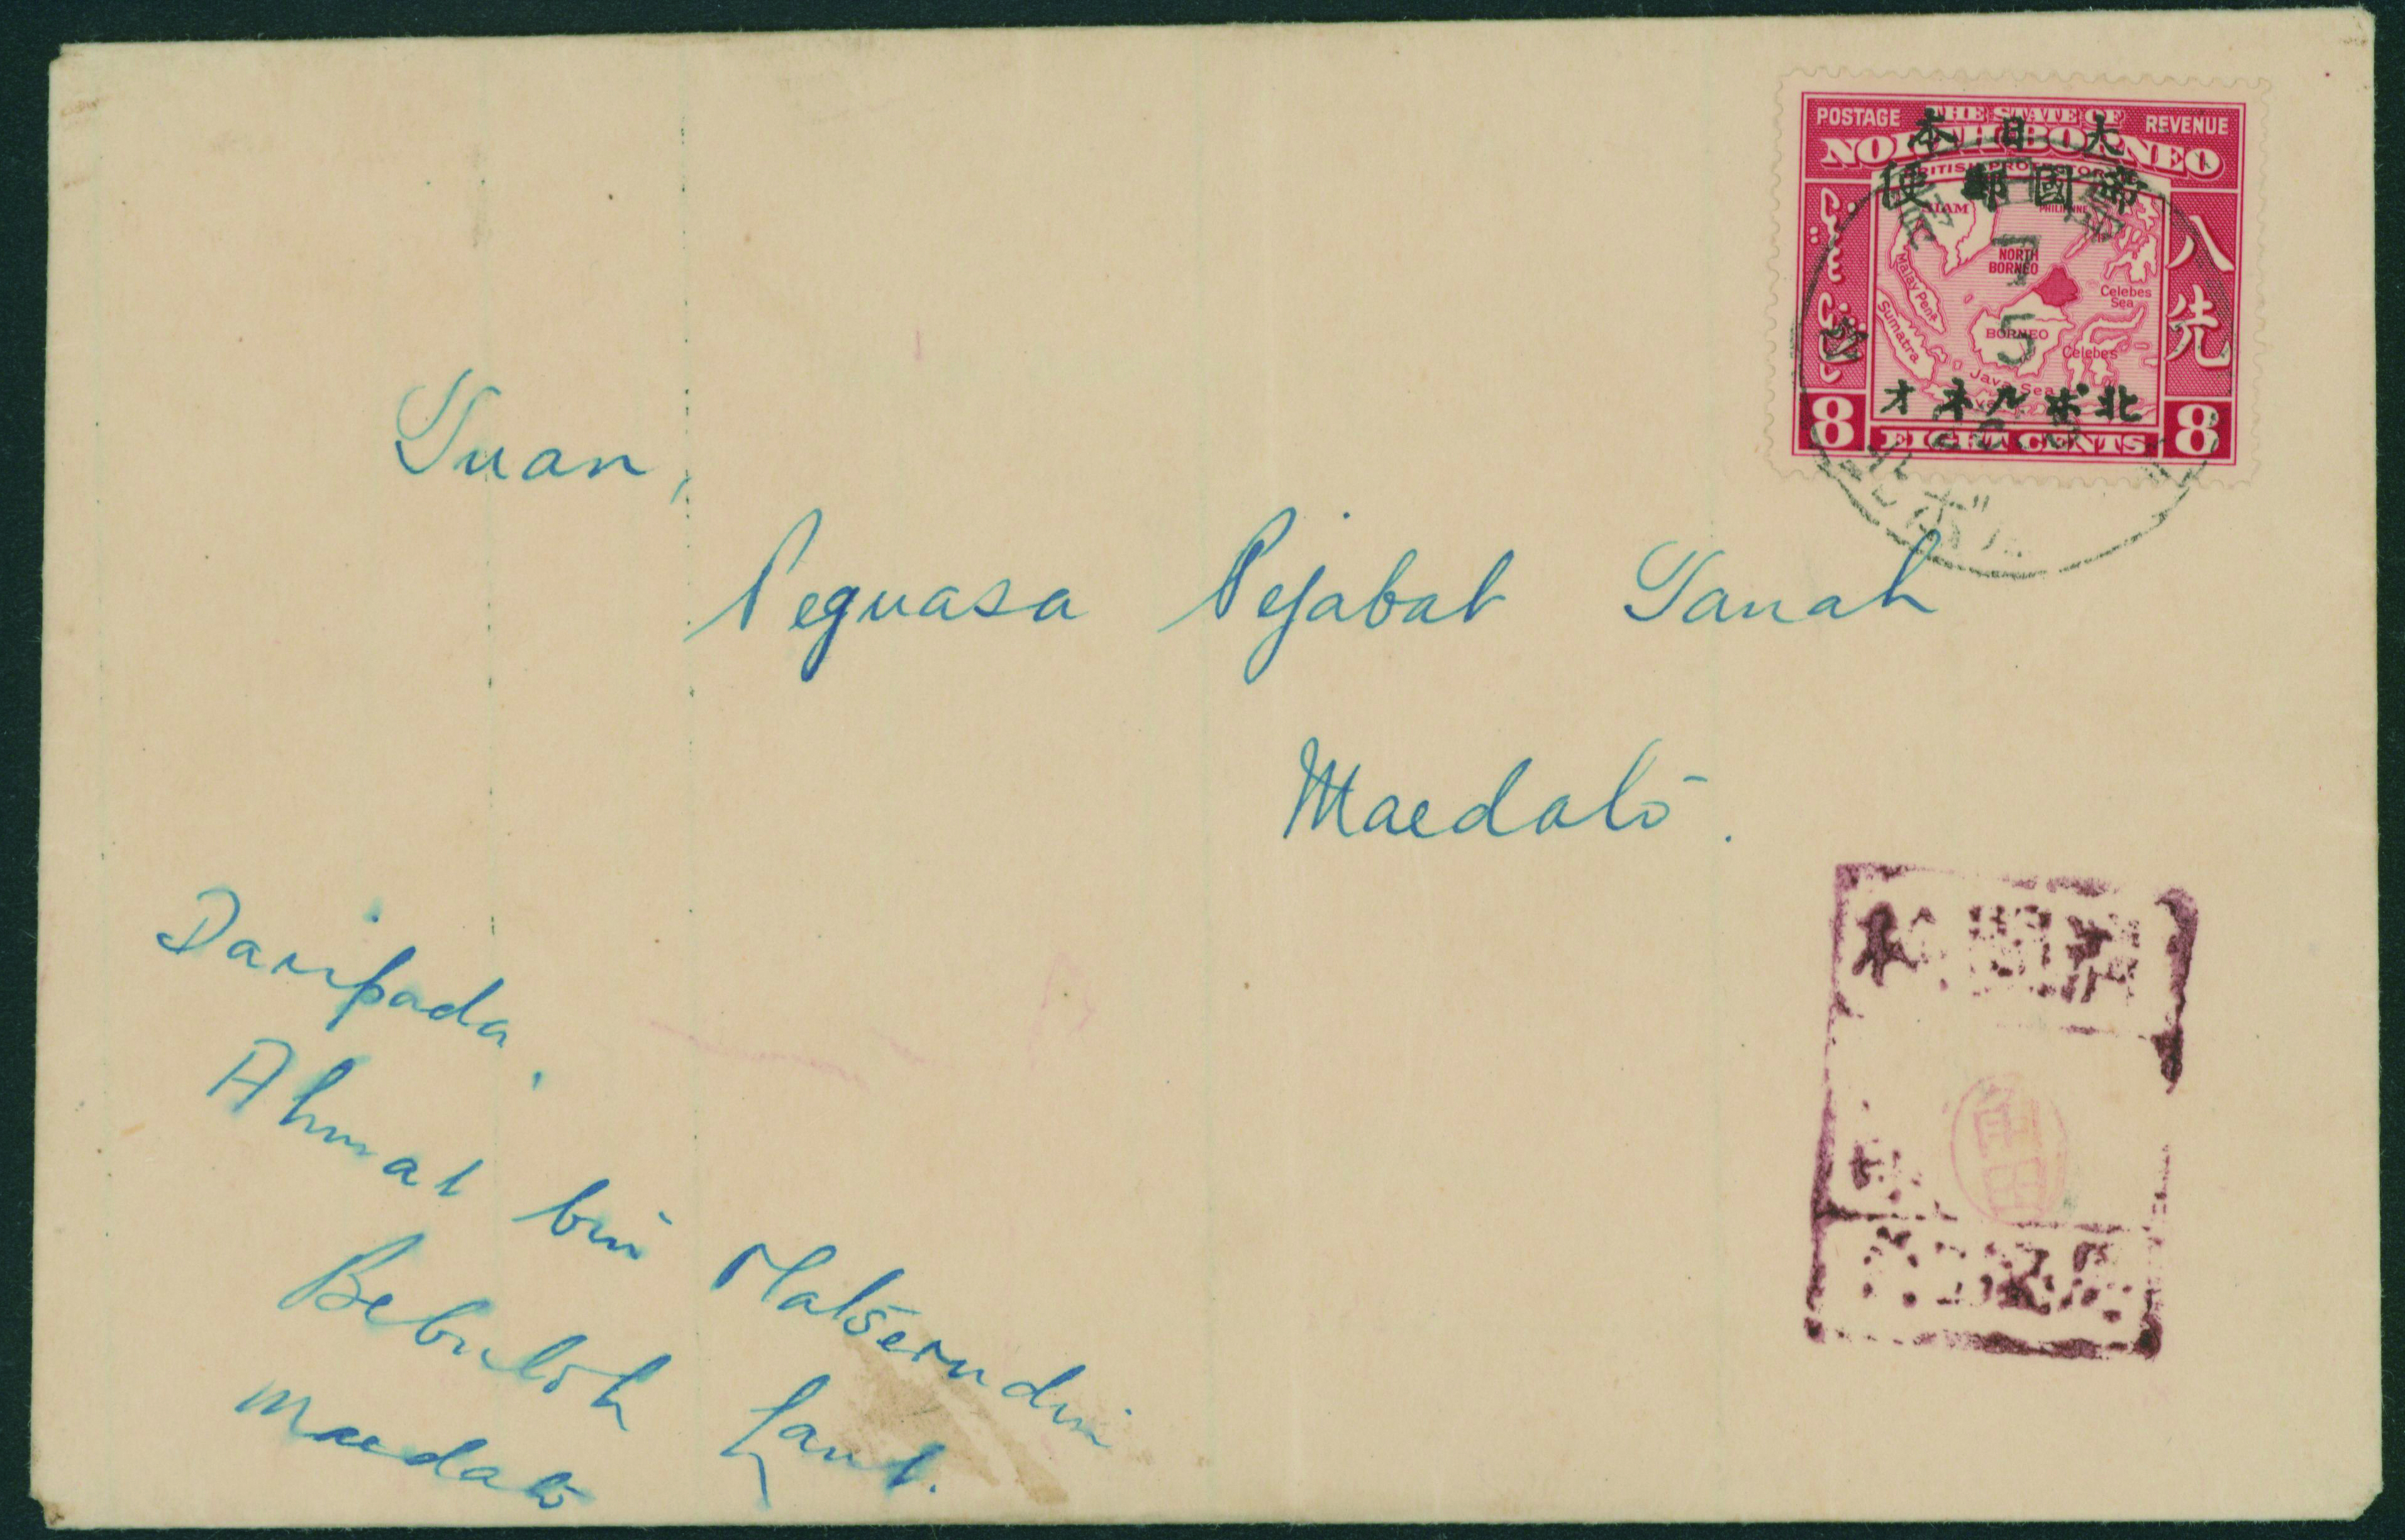 POSTAGE THE STATE OF REVENUE
NORTH BORNEO
大日本
帝國郵便
SIAM
PHILIPPINE
NORTH
BORNEO
Malay Penr
Sumatra
BORNEO
Celebes
Sea
Celebes
Java Sea
八先
7
5
北ボルネオ
8 EIGHT CENTS 8
北ボル
Tuan,
Peguasa Pejabat Tanah
Maedatō.
Daripada,
Ahmat bin Matserudin
Bebuloh Laut.
Maedatō
角田